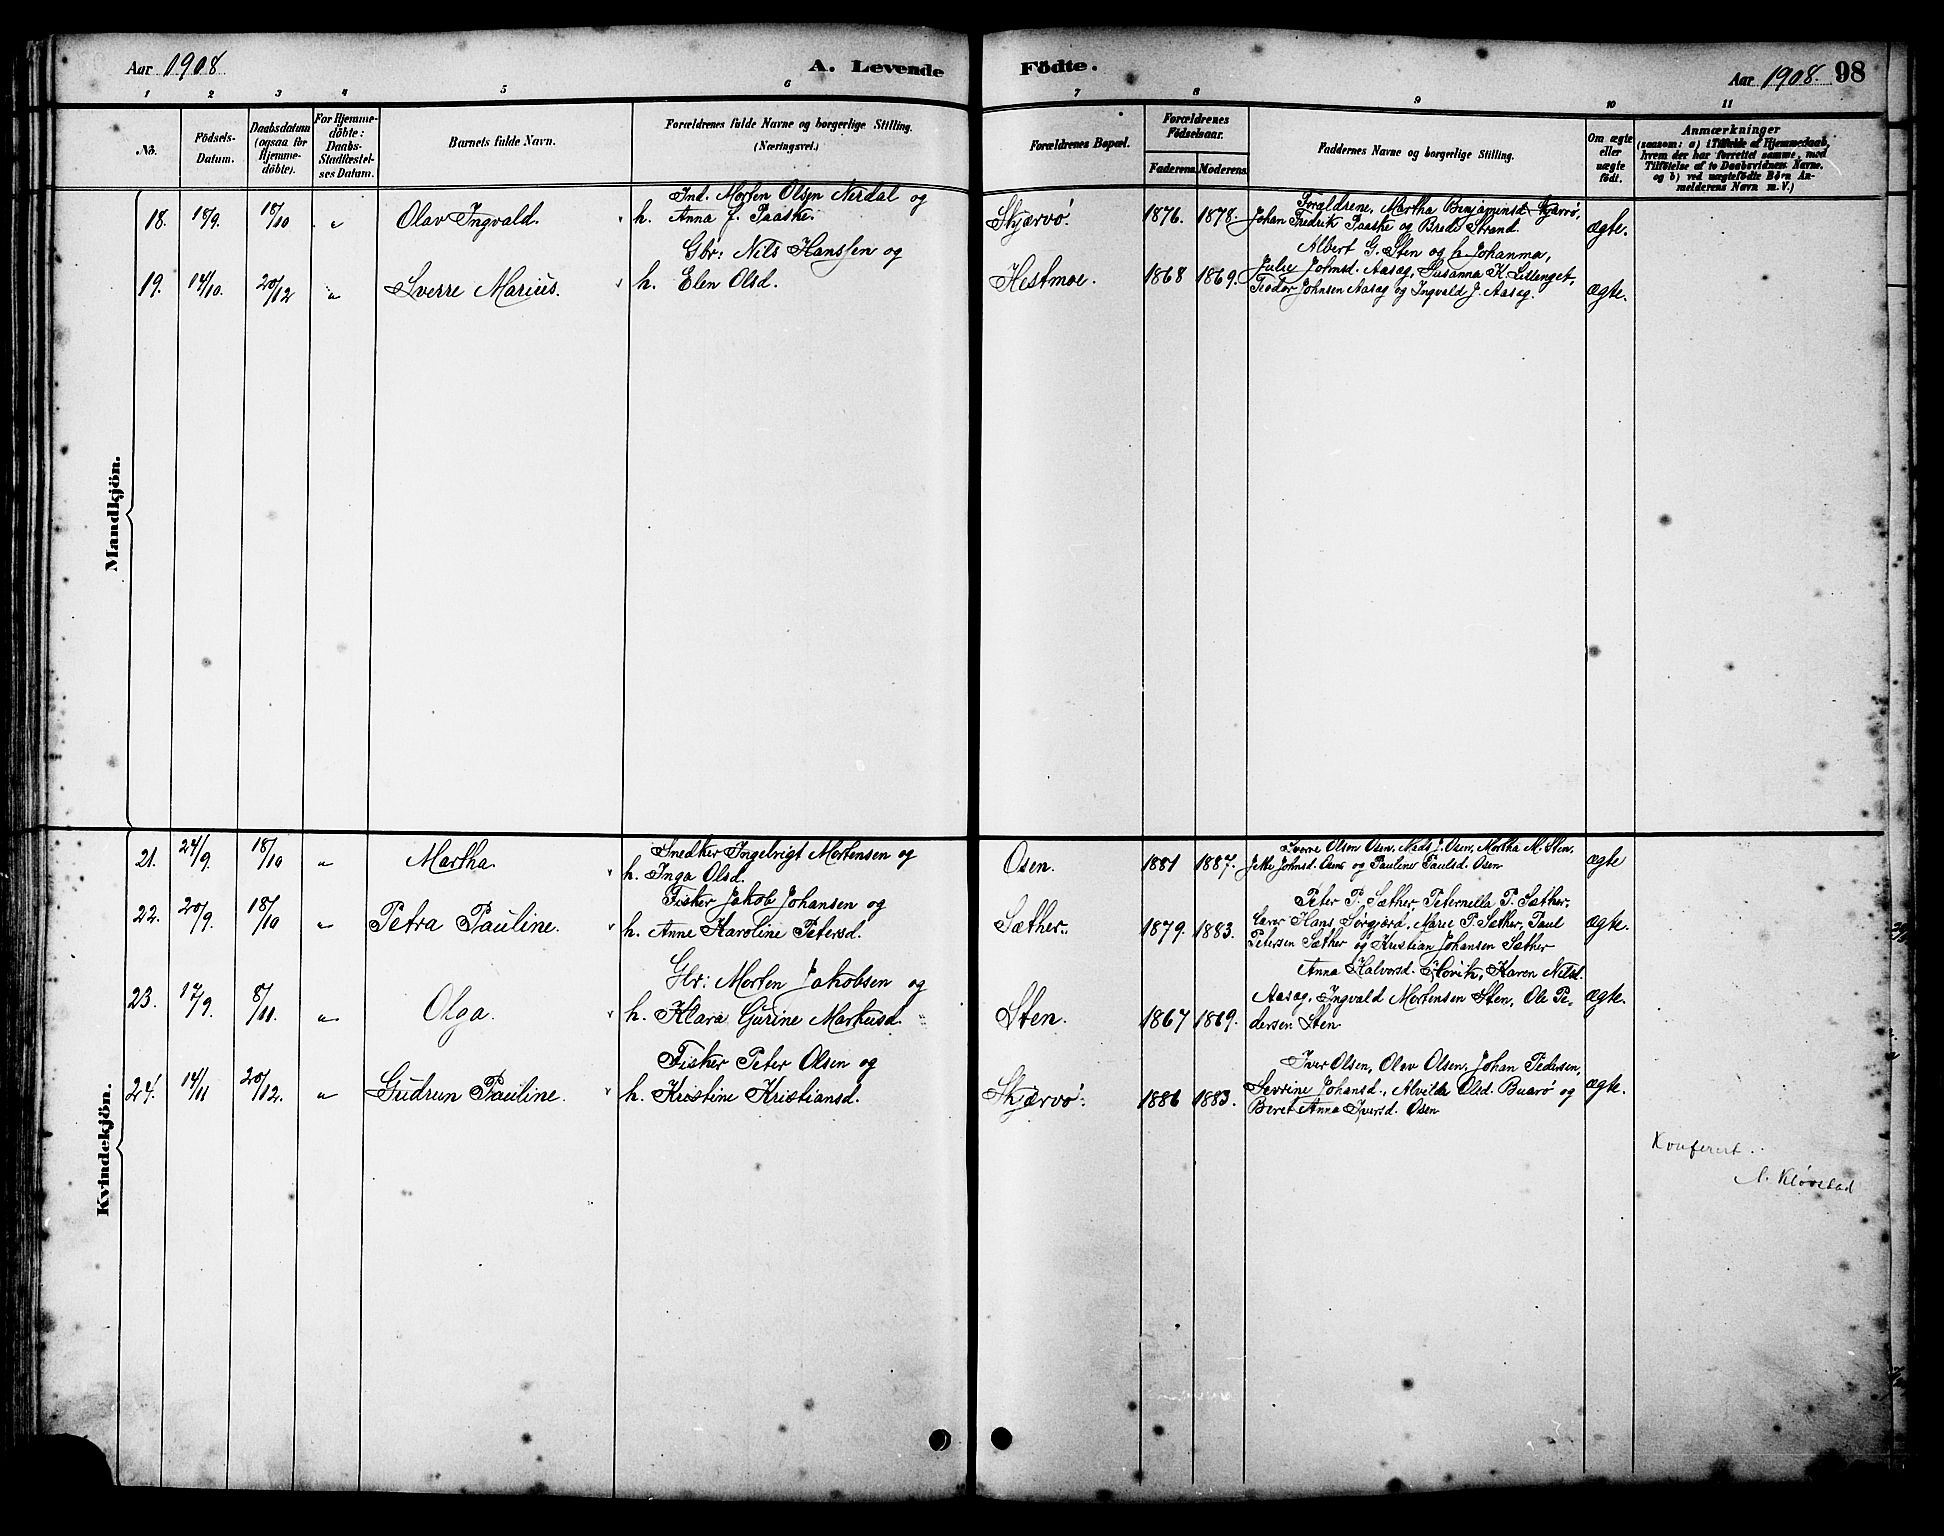 Aar 1908 A. Levende Födte. Aar 1908. 98
1 2 3 4 5 6 7 8 9 10 11
No.
Födsels-
Datum.
Daabsdatum
(ogsaa for
Hjemme-
döbte).
For Hjemme-
döbte:
Daabs-
Stadfæstel-
ses Datum.
Barnets fulde Navn.
Forældrenes fulde Navne og borgerlige Stilling.
(Næringsvei.)
Forældrenes Bopæl.
Forældrenes
Födselsaar.
Faderens. Moderens.
Faddernes Navne og borgerlige Stilling.
Om ægte
eller
uægte
födt.
Anmærkninger
(saasom: a) i Tilfælde af Hjemmedaab,
hvem der har forrettet samme, med
Tilföielse af to Daabsvidners Navne,
og b) ved uægtefödte Börn An-
melderens Navn m. V.)
Mandkjön.
18. 18/9. 18/10 " Olav Ingvald.
Ind. Morten Olsen Nerdal og
h. Anna J. Paaske.
Skjærvö. 1876. 1878.
Forældrene, Martha Benjaminsd. Skjærvö,
Johan Fredrik Paaske og Brede Strand
ægte.
19. 14/10. 20/12 " Sverre Marius.
Gbr: Nils Hanssen og
h. Elen Olsd.
Hestmoe. 1868 1869.
Albert G. Sten og h. Johanna,
Julie Johnsd. Aasag, Susanna K. Lillenget,
Teodor Johnsen Aasag og Ingvald J. Aasag.
ægte.
Kvindekjön.
21. 24/9 18/10 " Martha
Snedker Ingebrigt Mortensen og
h. Inga Olsd.
Osen. 1881 1887.
Sverre Olsen Osen, Mads J. Osen, Martha M. Sten,
Jette Johnsd. Osen og Pauline Paulsd. Osen
ægte
22. 20/9. 18/10 " Petra Pauline.
Fisker Jakob Johansen og
h. Anne Karoline Petersd.
Sæther. 1879. 1883.
Peter P. Sæther, Peternella P. Sæther,
Lærer Hans Sörgjerd, Marie P. Sæther, Paul
Petersen Sæther og Kristian Johansen Sæther
ægte.
23. 17/9. 8/11. " Olga.
Gbr: Morten Jakobsen og
h. Klara Gurine Markusd.
Sten. 1867 1869.
Anna Halvorsd. Hovik, Karen Nilsd.
Aasag, Ingvald Mortensen Sten, Ole Pe-
dersen Sten
ægte.
24. 14/11 20/12. " Gudrun Pauline.
Fisker Peter Olsen og
h. Kristine Kristiansd.
Skjærvö. 1886 1883.
Iver Olsen, Olav Olsen, Johan Pedersen,
Sevrine Johansd., Alvilda Olsd. Buarö og
Beret Anna Iversd. Osen
ægte.
Konferert.
A. Kløvstad